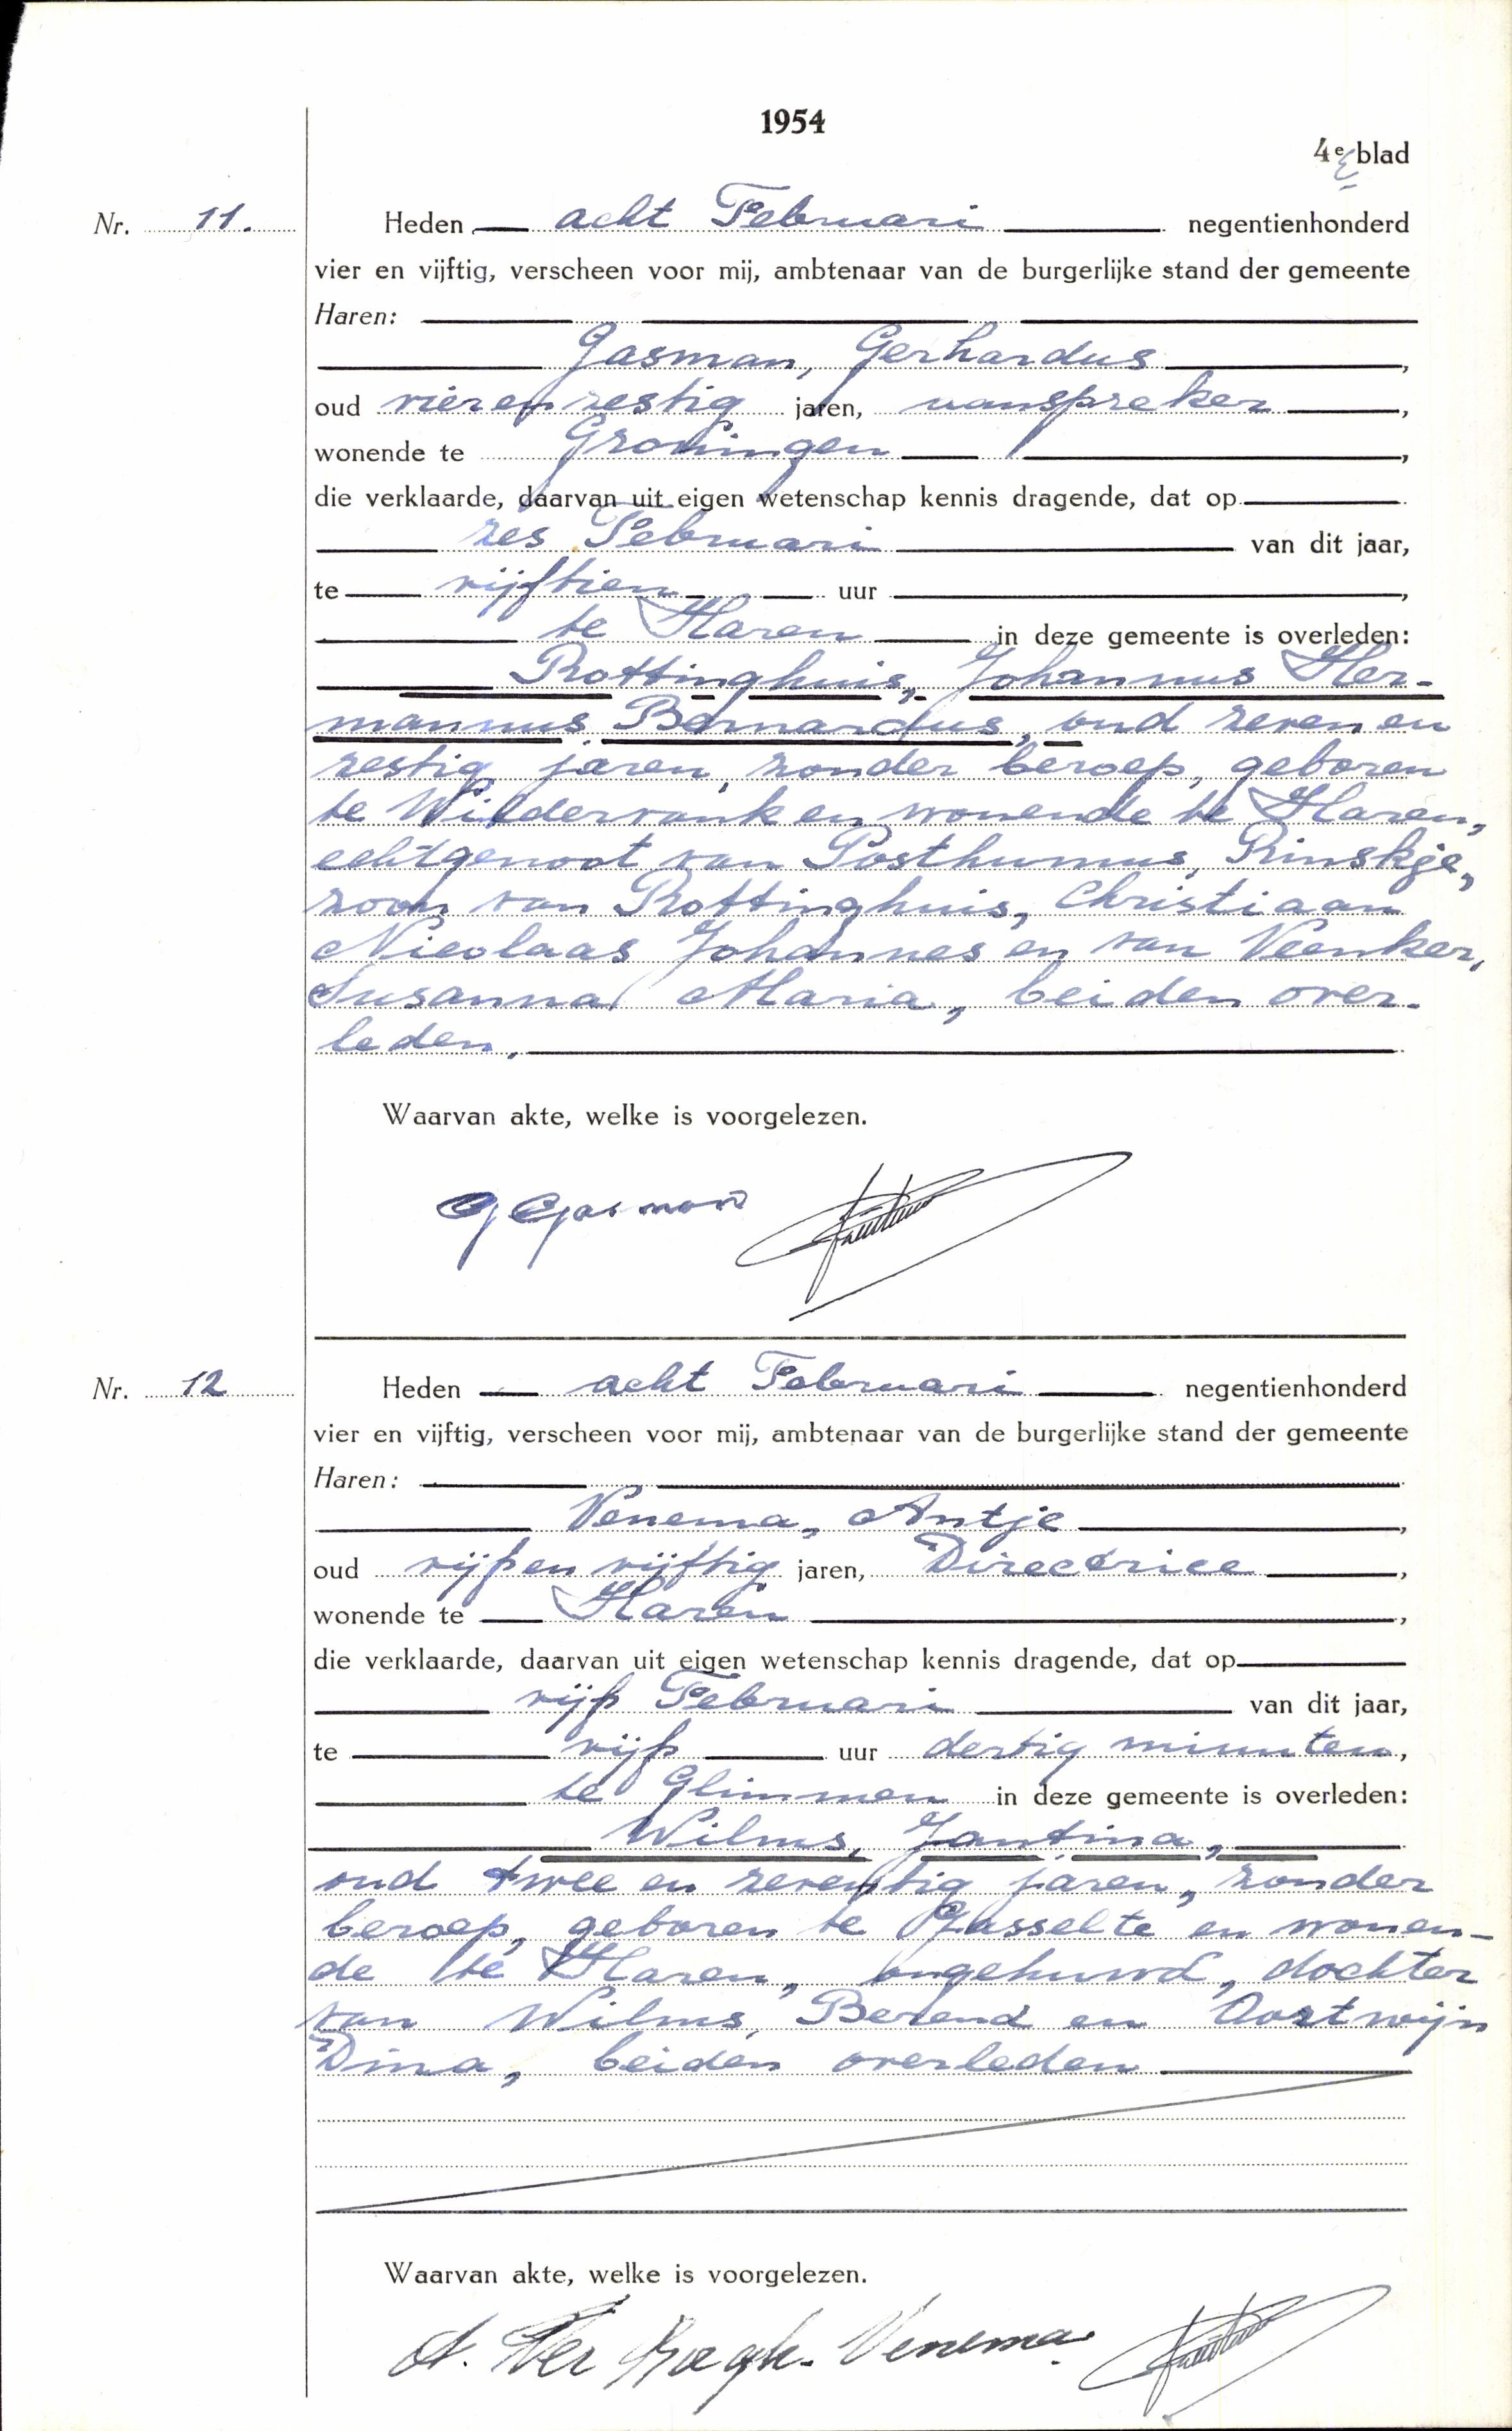 1954
4e blad
Nr. 11. Heden acht Februari negentienhonderd
vier en vijftig, verscheen voor mij, ambtenaar van de burgerlijke stand der gemeente
Haren:
Gasman, Gerhardus,
oud vier en zestig jaren, aanspreker,
wonende te Groningen,
die verklaarde, daarvan uit eigen wetenschap kennis dragende, dat op
zes Februari van dit jaar,
te vijftien uur,
te Haren in deze gemeente is overleden:
Rottinghuis, Johannus Her-
mannus Bernardus, oud zeven en
zestig jaren, zonder beroep, geboren
te Wildervank en wonende te Haren,
echtgenoot van Posthumus, Rinskje,
zoon van Rottinghuis, Christiaan
Nicolaas Johannes en van Veenker,
Susanna Maria, beiden over-
leden.
Waarvan akte, welke is voorgelezen.
G Gasman
Nr. 12 Heden acht Februari negentienhonderd
vier en vijftig, verscheen voor mij, ambtenaar van de burgerlijke stand der gemeente
Haren:
Venema, Antje,
oud vijf en vijftig jaren, Directrice,
wonende te Haren,
die verklaarde, daarvan uit eigen wetenschap kennis dragende, dat op
vijf Februari van dit jaar,
te vijf uur dertig minuten,
te Glimmen in deze gemeente is overleden:
Wilms, Jantina,
oud twee en zeventig jaren, zonder
beroep, geboren te Gasselte en wonen-
de te Haren, ongehuwd, dochter
van Wilms, Berend en Oostwijn
Dina, beiden overleden
Waarvan akte, welke is voorgelezen.
A. Ter Venema